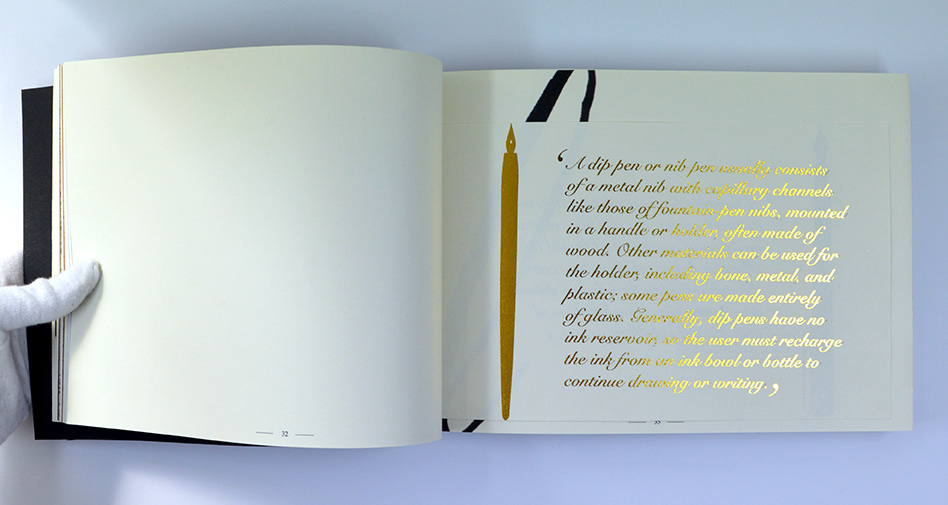 32
‘A dip pen or nib pen usually consists
of a metal nib with capillary channels
like those of fountain pen nibs, mounted
in a handle or holder, often made of
wood. Other materials can be used for
the holder, including bone, metal, and
plastic; some pens are made entirely
of glass. Generally, dip pens have no
ink reservoir; so the user must recharge
the ink from an ink bowl or bottle to
continue drawing or writing.’